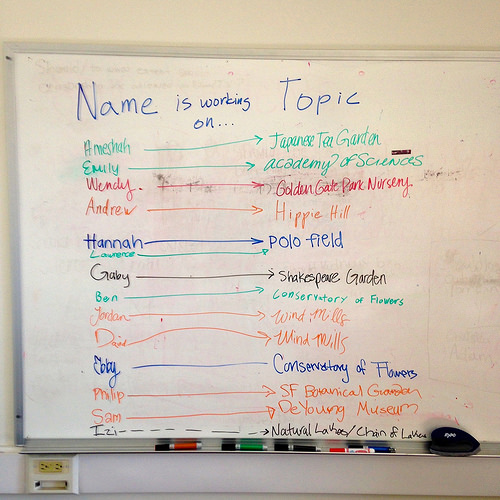 Name is working on... Topic
Ameshah → Japanese Tea Garden
Emily → academy of Sciences
Wendy. → Golden Gate Park Nursery
Andrew → Hippie Hill
Hannah → polo field
Lawrence →
Gaby → Shakespeare Garden
Ben → Conservatory of Flowers
Jordan → Wind Mills
→ Wind Mills
Ebby — Conservatory of Flowers
Philip → SF Botanical Garden
Sam → De Young Museum
Izi → Natural Lakes/Chain of Lakes
EXPO